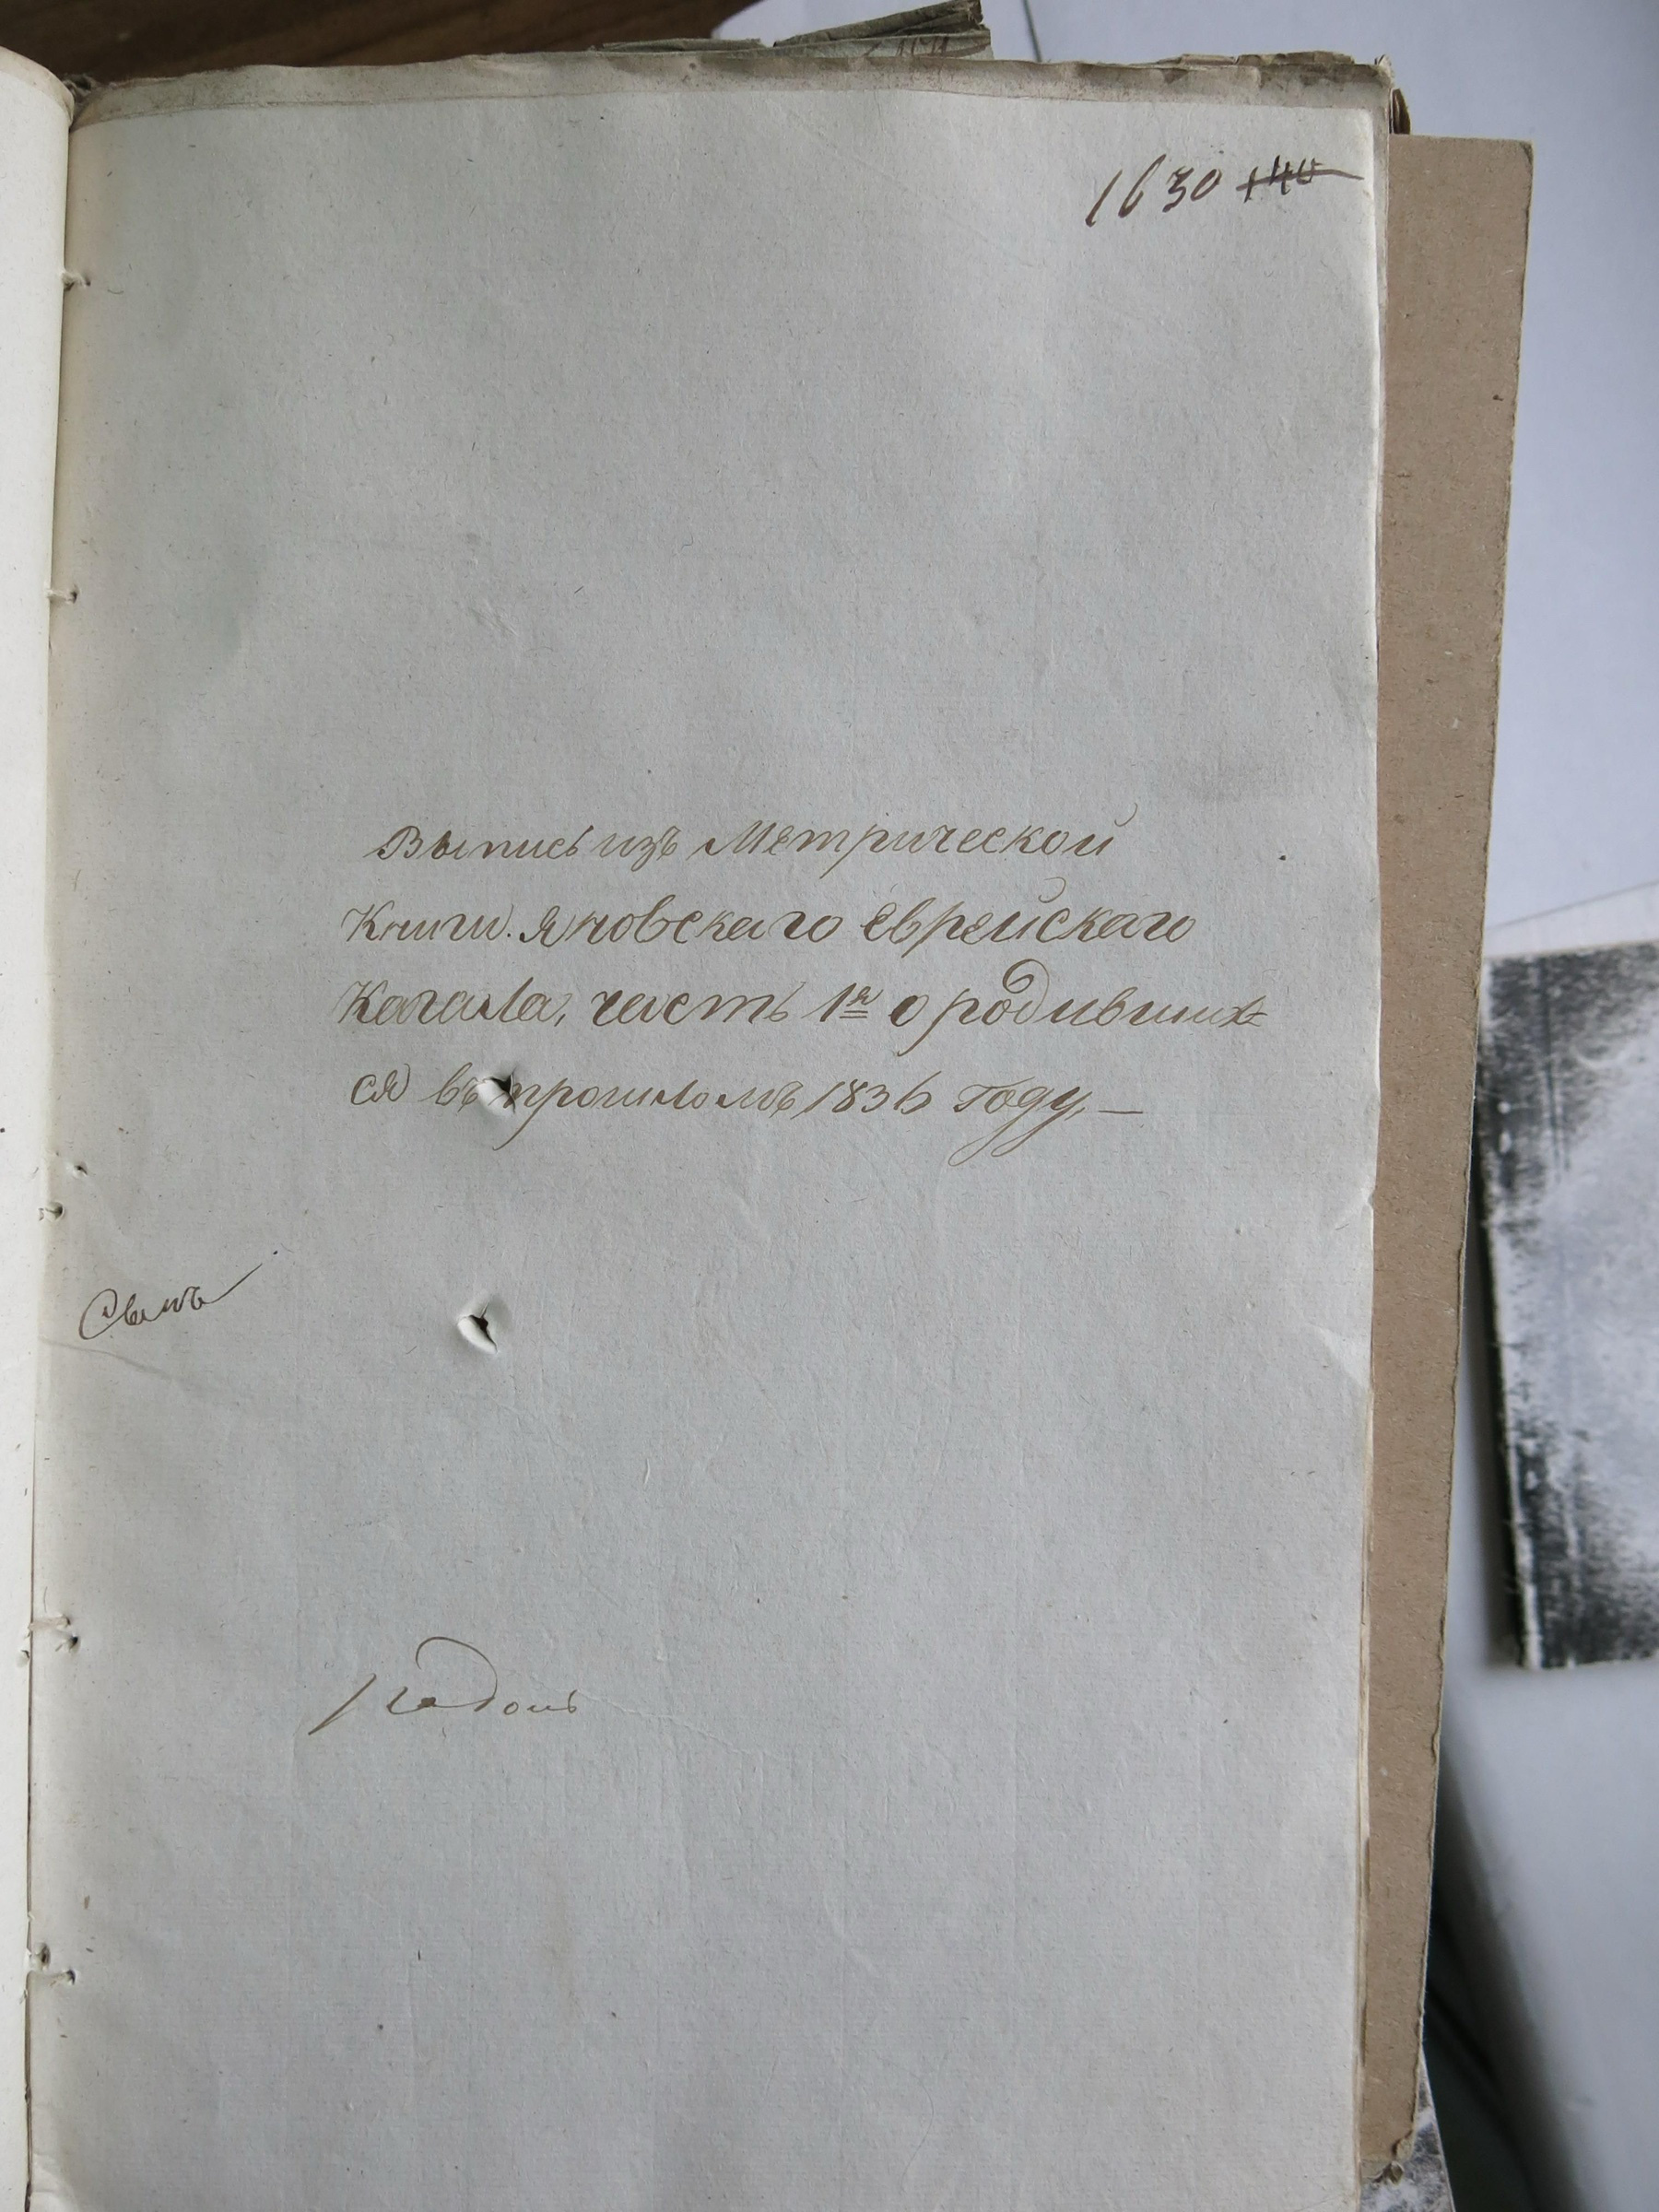 1630 140
Выпись изъ Метрической
Книги Яновскаго Еврейскаго
Кагала, часть 1я о родивших=
ся въ прошломъ 1836 году —